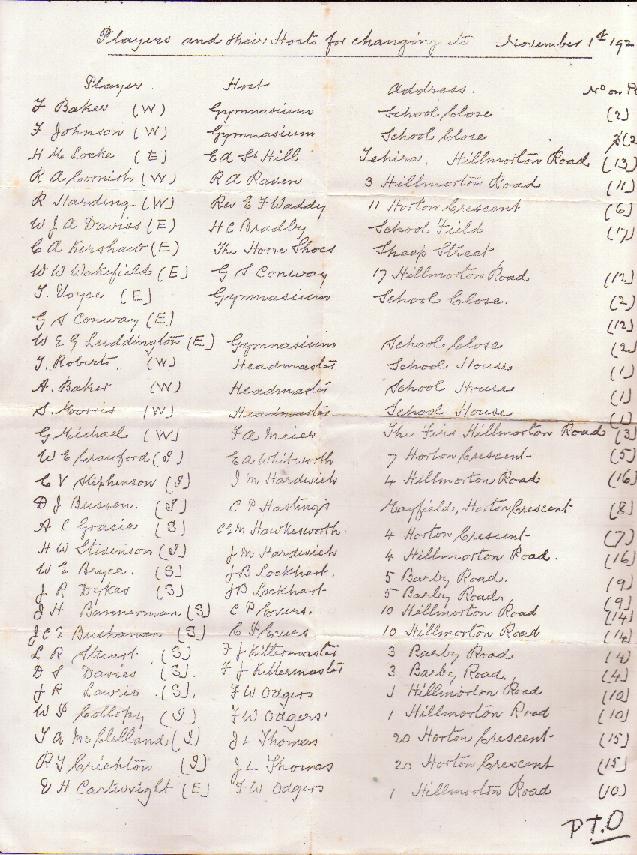 Players and their Hosts for changing etc November 1st 192
Player. Host Address. No on Pl
F Baker (W) Gymnasium School Close (2)
F Johnson (W) Gymnasium School Close (2
H M Locke (E) E A St Hill Hillmorton Road (13)
R A Cornish (W) R A Raven 3 Hillmorton Road (11)
R Harding (W) Rev E F Waddy 11 Horton Crescent (6)
W J A Davies (E) H C Bradby School Field (17)
C A Kershaw (E) The Horse Shoes Sheep Street
W W Wakefield (E) G S Conway 17 Hillmorton Road (12)
T. Voyce (E) Gymnasium School Close. (2)
G S Conway (E) (12)
W E G Luddington (E) Gymnasium School Close (2)
T. Roberts. (W) Headmaster School House (1)
A. Baker (W) Headmaster School House (1)
S. Morris (W) Headmaster School House (1)
G Michael (W) F A Meier The Firs Hillmorton Road (3)
W E Crawford (I) E A Whitworth 7 Horton Crescent (5)
C V Stephenson (I) J M Hardwich 4 Hillmorton Road (16)
D J Bussen. (S) C P Hastings Mayfield, Horton Crescent (8)
A C Gracie (S) C G M Hawkesworth 4 Horton Crescent (7)
H W Stevenson (I) J M Hardwich 4 Hillmorton Road. (16)
W E Bryce. (S) J B Lockhart. 5 Barby Road. (9)
J. R Dykes (S) J B Lockhart 5 Barby Road, (9)
J H Bannerman (S) C P Evers. 10 Hillmorton Road (14)
J C R Buchanan (S) C P Evers 10 Hillmorton Road (14)
L R Stewart. (S) F J Kittermaster 3 Barby Road (4)
D S Davies (S). F J Kittermaster 3 Barby Road, (4)
J R Lawrie (S). F W Odgers 1 Hillmorton Road (10)
W P Collopy (I) F W Odgers 1 Hillmorton Road (10)
T A McClelland (I) J L Thomas 20 Horton Crescent (15)
P J Crichton (I) J L Thomas 20 Horton Crescent (15)
V H Cartwright (E) F W Odgers 1 Hillmorton Road (10)
P.T.O